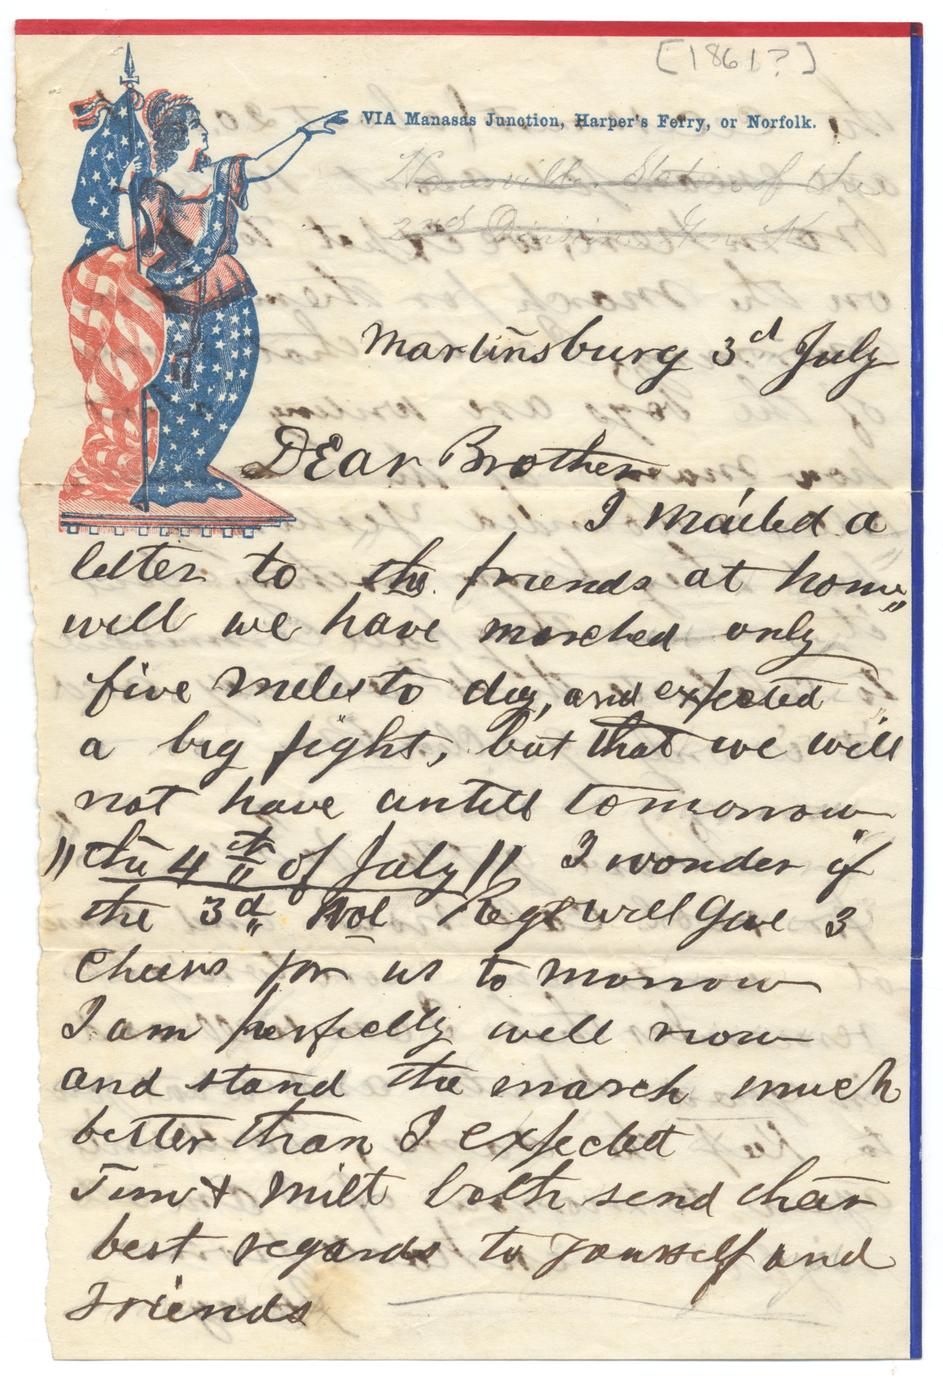 [1861?]
VIA Manasas Junction, Harper's Ferry, or Norfolk.
of the
2nd Division
Martinsburg 3d July
DEar Brother
I mailed a
letter to the friends at home"
well we have marched only
five miles to day, and expected
a big fight, but that we will
not have untill tomorrow
"the 4th of July" I wonder if
the 3d Wol Regt will Give 3
Chears for us to morrow
I am perfectly well now
and stand the march much
better than I expected
Jim & Milt both send thear
best regards to yourself and
Friends